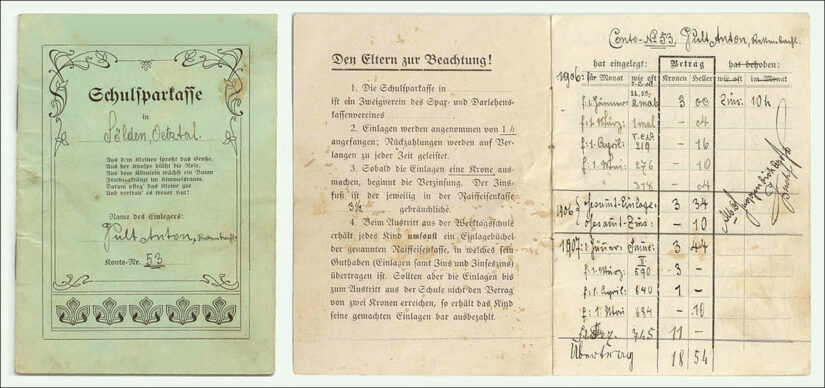 Schulsparkasse
in
Sölden, Oetztal.
Aus dem Kleinen sproßt das Große,
Aus der Knospe blüht die Rose,
Aus dem Körnlein wächst ein Baum
Fruchtgekränzt im Himmelsraum.
Darum pfleg' das Kleine gut
Und vertrau' es treuer Hut!
Name des Einlegers:
Gült Anton,
Konto-Nr. 53
Den Eltern zur Beachtung!
1. Die Schulsparkasse in
ist ein Zweigverein des Spar- und Darlehens-
kassenvereines
2. Einlagen werden angenommen von 1 h
angefangen; Rückzahlungen werden auf Ver-
langen zu jeder Zeit geleistet.
3. Sobald die Einlagen eine Krone aus-
machen, beginnt die Verzinsung. Der Zins-
fuß ist der jeweilig in der Raiffeisenkasse
3½ gebräuchliche.
4. Beim Austritt aus der Werktagsschule
erhält jedes Kind umsonst ein Einlagebüchel
der genannten Raiffeisenkasse, in welches sein
Guthaben (Einlagen samt Zins und Zinseszins)
übertragen ist. Sollten aber die Einlagen bis
zum Austritt aus der Schule nicht den Betrag
von zwei Kronen erreichen, so erhält das Kind
seine gemachten Einlagen bar ausbezahlt.
Conto-No 53, Gült Anton,
hat eingelegt: Betrag hat behoben:
1906: für Monat wie oft Kronen Heller wie oft im Monat
f. Jänner 2mal 3 00 Zins: 10h
f. 1. März: 1mal – 04
f. 1. April: 219 – 16
f. 1. Mai: 276 – 10
" 318 – 04
1906: Gesamt-Einlage: 3 34
Gesamt-Zins: – 10
1907: 3 44
f. 1. März: 590 3 –
f. 1. April: 640 1 –
f. 1. Mai 684 – 10
745 11 –
Übertrag 18 54